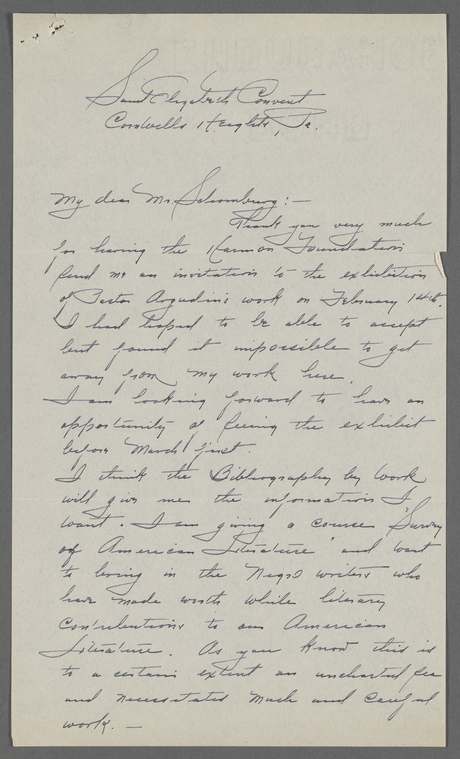 Saint Elizabeth Convent
Cornwells Heights, Pa.
My dear Mr Schomburg:—
Thank you very much
for having the Harmon Foundation
send me an invitation to the exhibition
of Pastor Argudin's work on February 14th.
I had hoped to be able to accept
but found it impossible to get
away from my work here.
I am looking forward to have an
opportunity of seeing the exhibit
before March first.
I think the Bibliography by Work
will give me the information I
want. I am giving a course "Survey
of American Literature" and want
to bring in the Negro writers who
have made worth while literary
contributions to our American
Literature. As you know this is
to a certain extent an uncharted sea
and necessitates much and careful
work. —